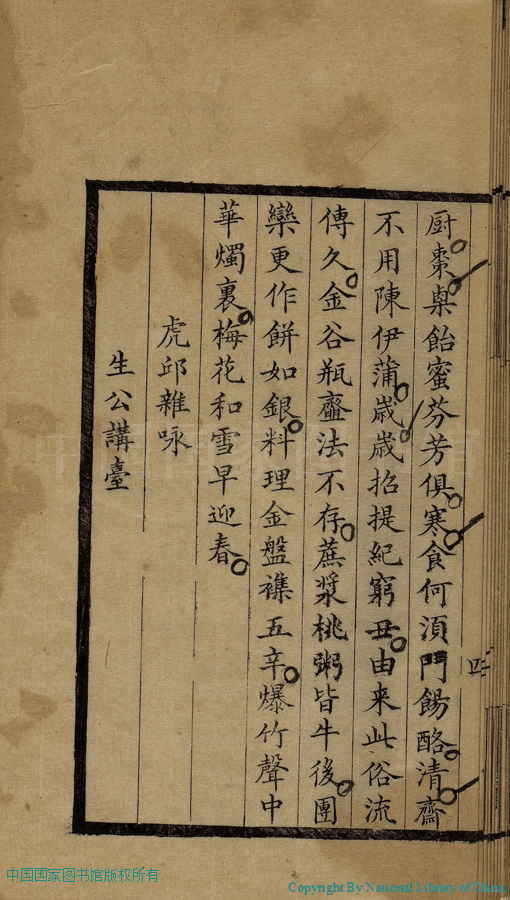 厨棗㮚飴蜜芬芳俱寒食何湏鬥餳酪清齋
不用陳伊蒲歲歲招提紀窮丑由来此俗流
傳久金谷瓶虀法不存蔗漿桃粥皆牛後團
欒更作餅如銀料理金盤襍五辛爆竹聲中
華燭裏梅花和雪早迎春
虎邱雜咏
生公講臺
四
中国国家图书馆版权所有
Copyright By National Library of China